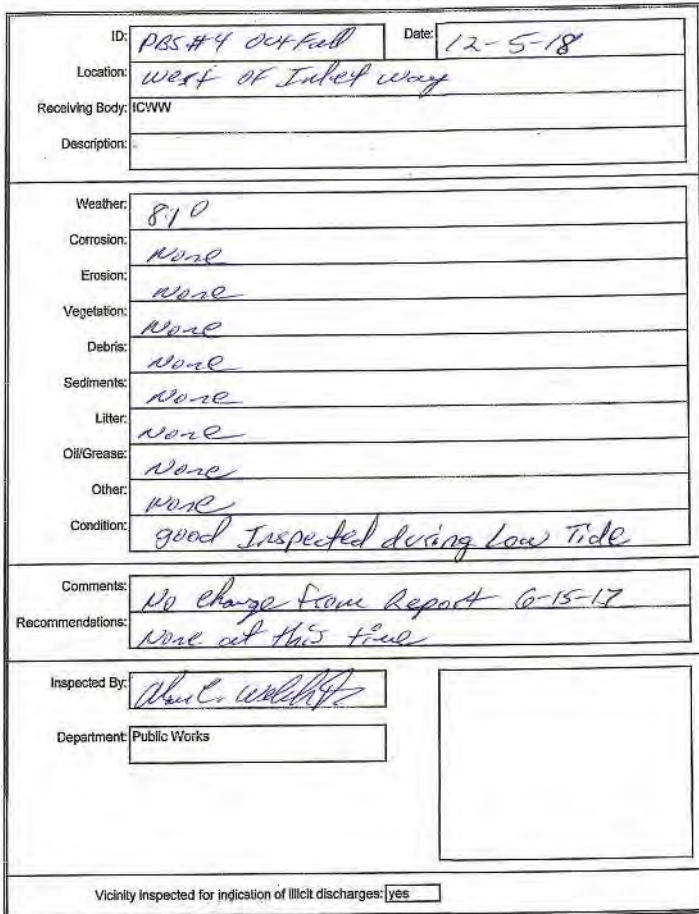 ID: PBS#4 OutFall Date: 12-5-18
Location: West of Inlet Way
Receiving Body: ICWW
Description:
Weather:
Corrosion: None
Erosion: None
Vegetation: None
Debris: None
Sediments: None
Litter: None
Oil/Grease: None
Other: None
Condition: good Inspected during Low Tide
Comments: No change from Report 6-15-17
Recommendations: None at this time
Inspected By:
Department: Public Works
Vicinity inspected for indication of illicit discharges: yes